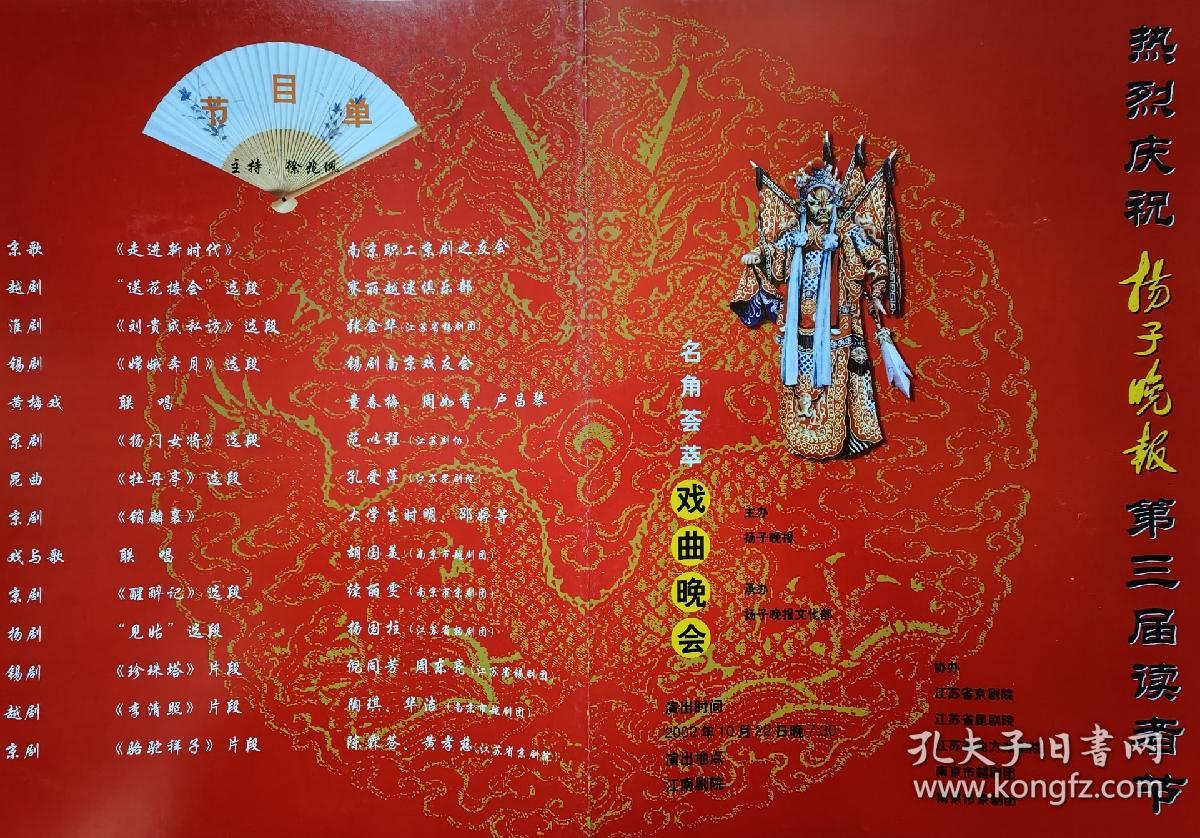 节目单
主持：徐兆佩
京歌 《走进新时代》 南京职工京剧之友会
越剧 “送花接会”选段 赛丽越迷俱乐部
淮剧 《刘贵成私访》选段 张金华(江苏省锡剧团)
锡剧 《嫦娥奔月》选段 锡剧南京戏友会
黄梅戏 联 唱 童春梅、周如香、卢昌琴
京剧 《扬门女将》选段 范以程(江苏剧协)
昆曲 《牡丹亭》选段 孔爱萍(江苏昆剧院)
京剧 《锁麟囊》 大学生时明、邵 等
戏与歌 联 唱 胡国美(南京市越剧团)
京剧 《醒醉记》选段 续丽雯(南京市京剧团)
扬剧 “见姑”选段 杨国柱(江苏省扬剧团)
锡剧 《珍珠塔》片段 倪同芳 周东亮(江苏省锡剧团
越剧 《李清照》片段 陶琪、华洁(南京市越剧团)
京剧 《骆驼祥子》片段 陈霖苍、黄孝慈(江苏省京剧院)
名角荟萃
戏曲晚会
主办
扬子晚报
承办
扬子晚报文化部
协办
江苏省京剧院
江苏省昆剧院
江苏
南京市越剧团
南京市京剧团
演出时间
2002年10月22日晚7:30
演出地点
江南剧院
热烈庆祝扬子晚报第三届读者节
孔夫子旧书网
www.kongfz.com